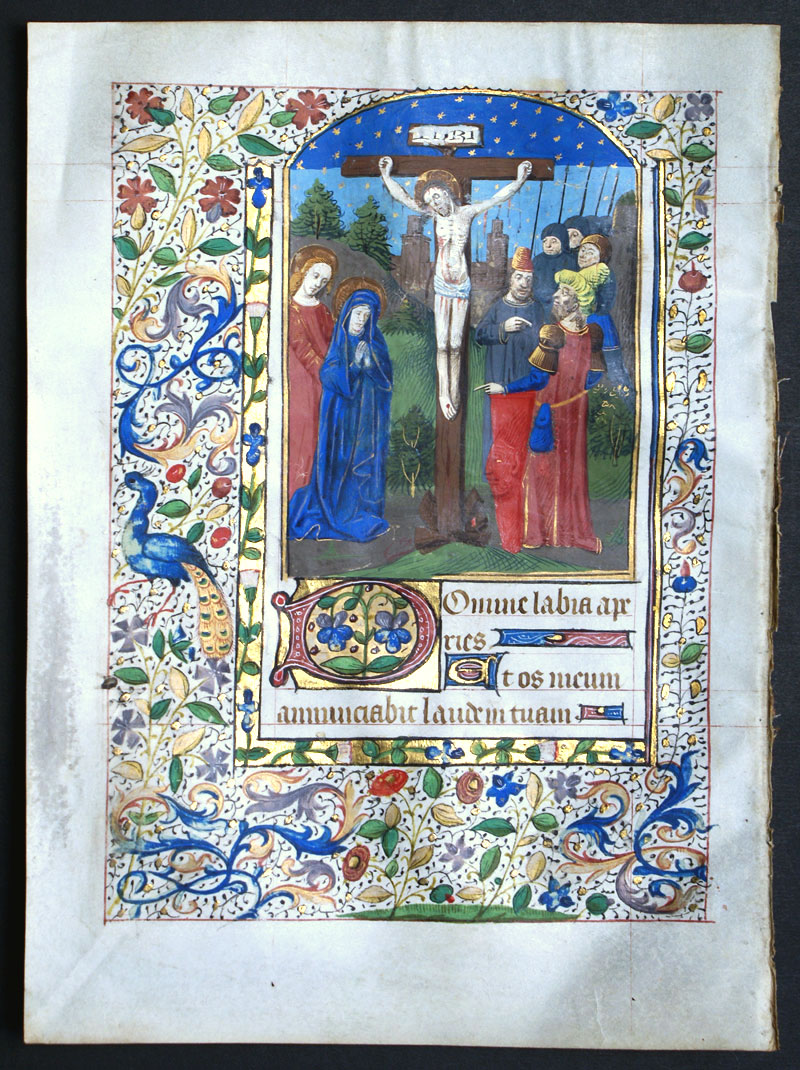 INRI
Domine labia ape
ries
Et os meum
annunciabit laudem tuam.